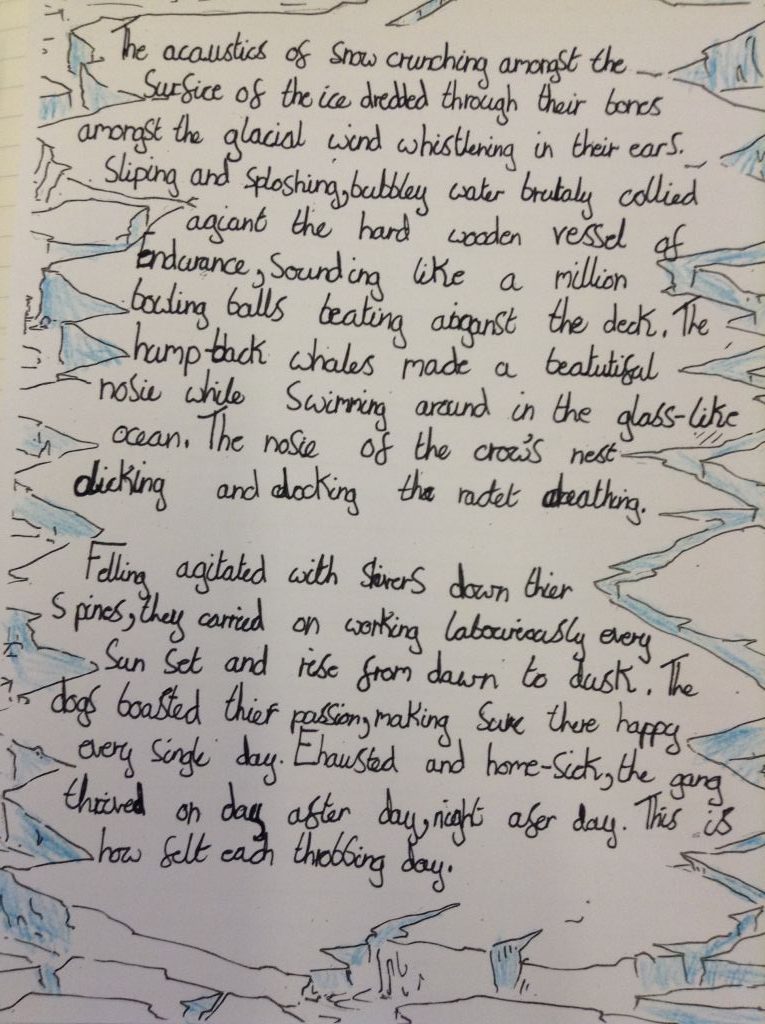 The acaustics of snow crunching amongst the
Surfice of the ice dredded through their bones
amongst the glacial wind whistlening in their ears.
Sliping and sploshing, bubbley water brutaly collied
agiant the hard wooden vessel of
Endurance, Sounding like a million
bowling balls beating aiganst the deck. The
hump-back whales made a beatutifal
nosie while Swimming around in the glass-like
ocean. The nosie of the crow's nest
clicking and clocking the
Felling agitated with shivers down thier
Spines, they carried on working laboureously every
Sun Set and rise from dawn to dusk. The
dogs boasted thier passion, making Sure there happy
every Single day. Ehausted and home-sick, the gang
thrived on day after day, night afer day. This is
how felt each throbbing day.